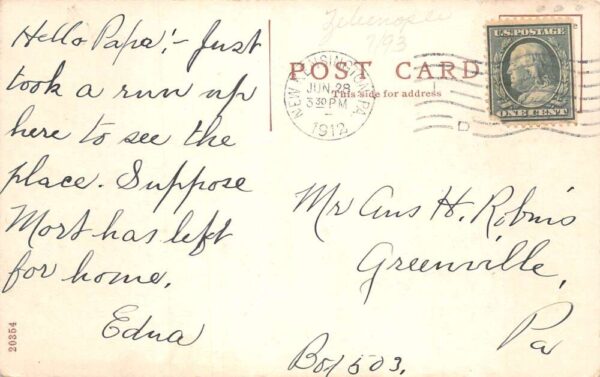 Hello Papa:- Just
took a run up
here to see the
place. Suppose
Mort has left
for home.
Edna
20354
POST CARD
This side for address
NEW KENSINGTON, PA.
JUN 28
3 30 PM
1912
D
U.S. POSTAGE
ONE CENT
Mr Gus H. Robins
Greenville,
Pa
Box 503.